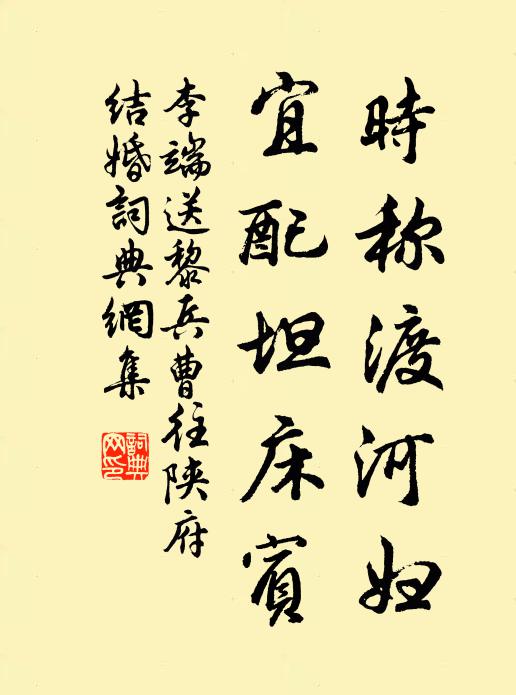 時称渡河妇
宜配坦床賓
李端送黎兵曹往陕府
结婚詞典網集
詞典网印